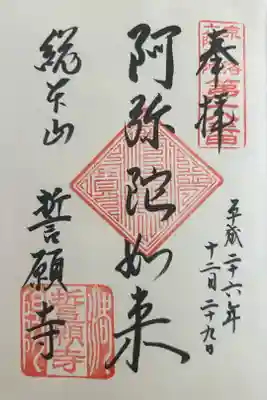 奉拝
平成二十六年
十二月二十九日
阿弥陀如来
総本山
誓願寺
誓願寺